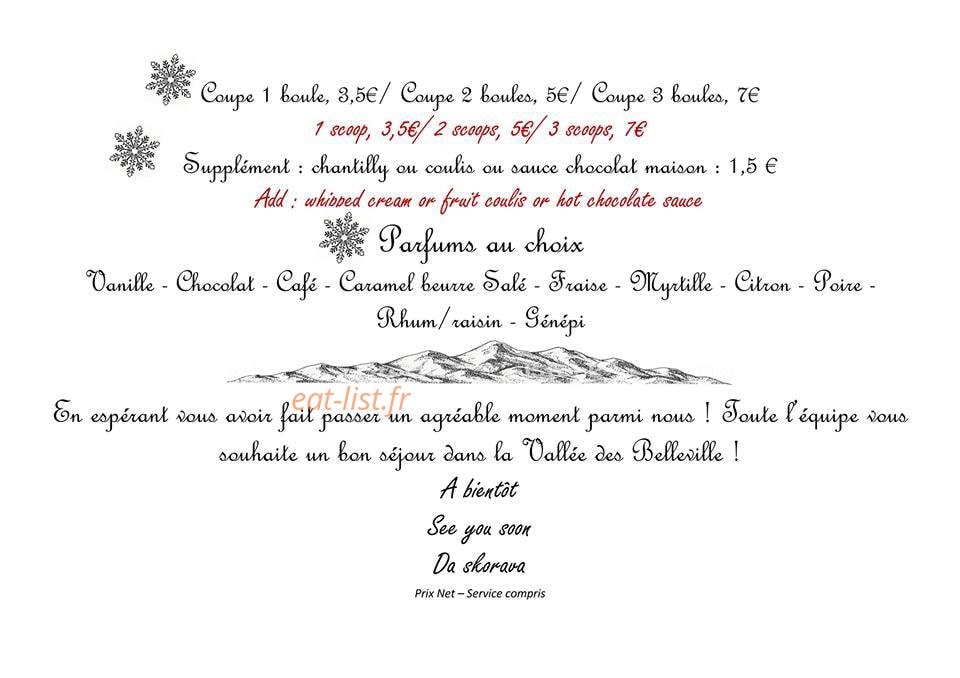 Coupe 1 boule, 3,5€/ Coupe 2 boules, 5€/ Coupe 3 boules, 7€
1 scoop, 3,5€/ 2 scoops, 5€/ 3 scoops, 7€
Supplément : chantilly ou coulis ou sauce chocolat maison : 1,5 €
Add : whipped cream or fruit coulis or hot chocolate sauce
Parfums au choix
Vanille - Chocolat - Café - Caramel beurre Salé - Fraise - Myrtille - Citron - Poire -
Rhum/raisin - Génépi
eat-list.fr
En espérant vous avoir fait passer un agréable moment parmi nous ! Toute l'équipe vous
souhaite un bon séjour dans la Vallée des Belleville !
A bientôt
See you soon
Da skorava
Prix Net – Service compris